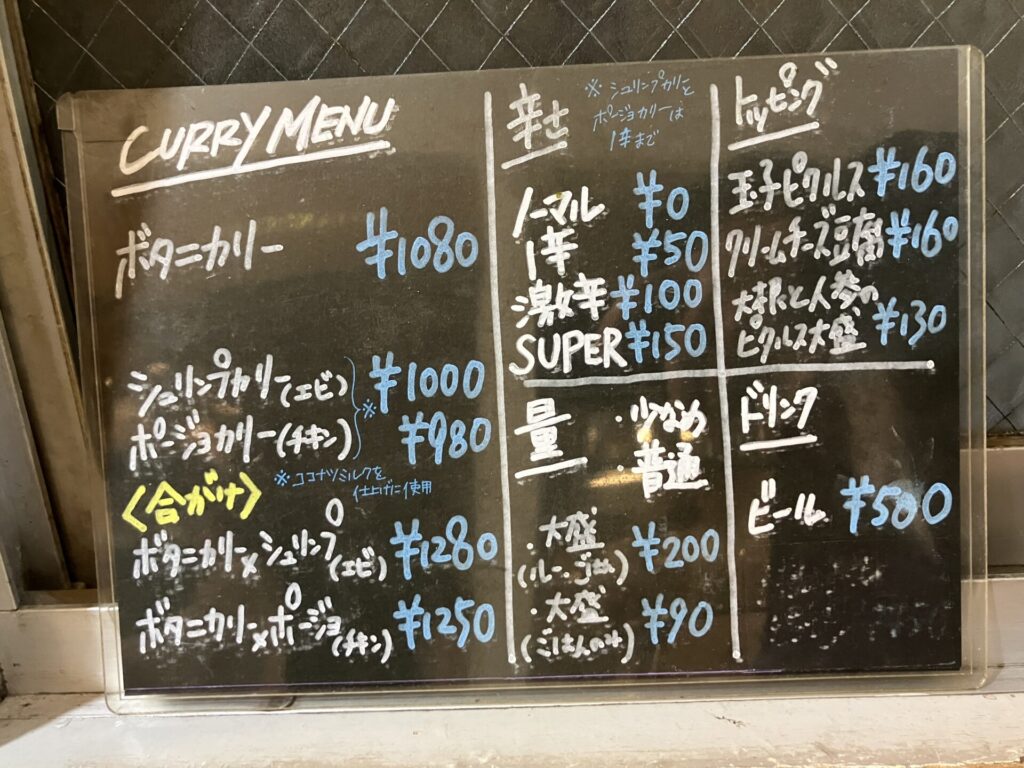 CURRY MENU
ボタニカリー ¥1080
シュリンプカリー(エビ) ※ ¥1000
ポージョカリー(チキン) ¥980
※ココナツミルクを
仕上げに使用
〈合がけ〉
ボタニカリー×シュリンプ(エビ) ¥1280
ボタニカリー×ポージョ(チキン) ¥1250
辛さ
※シュリンプカリーと
ポージョカリーは
1辛まで
ノーマル ¥0
1辛 ¥50
激辛 ¥100
SUPER ¥150
量
・少なめ
・普通
・大盛 ¥200
(ルー、ごはん)
・大盛 ¥90
(ごはんのみ)
トッピング
玉子ピクルス ¥160
クリームチーズ豆腐 ¥160
大根と人参の
ピクルス大盛 ¥130
ドリンク
ビール ¥500